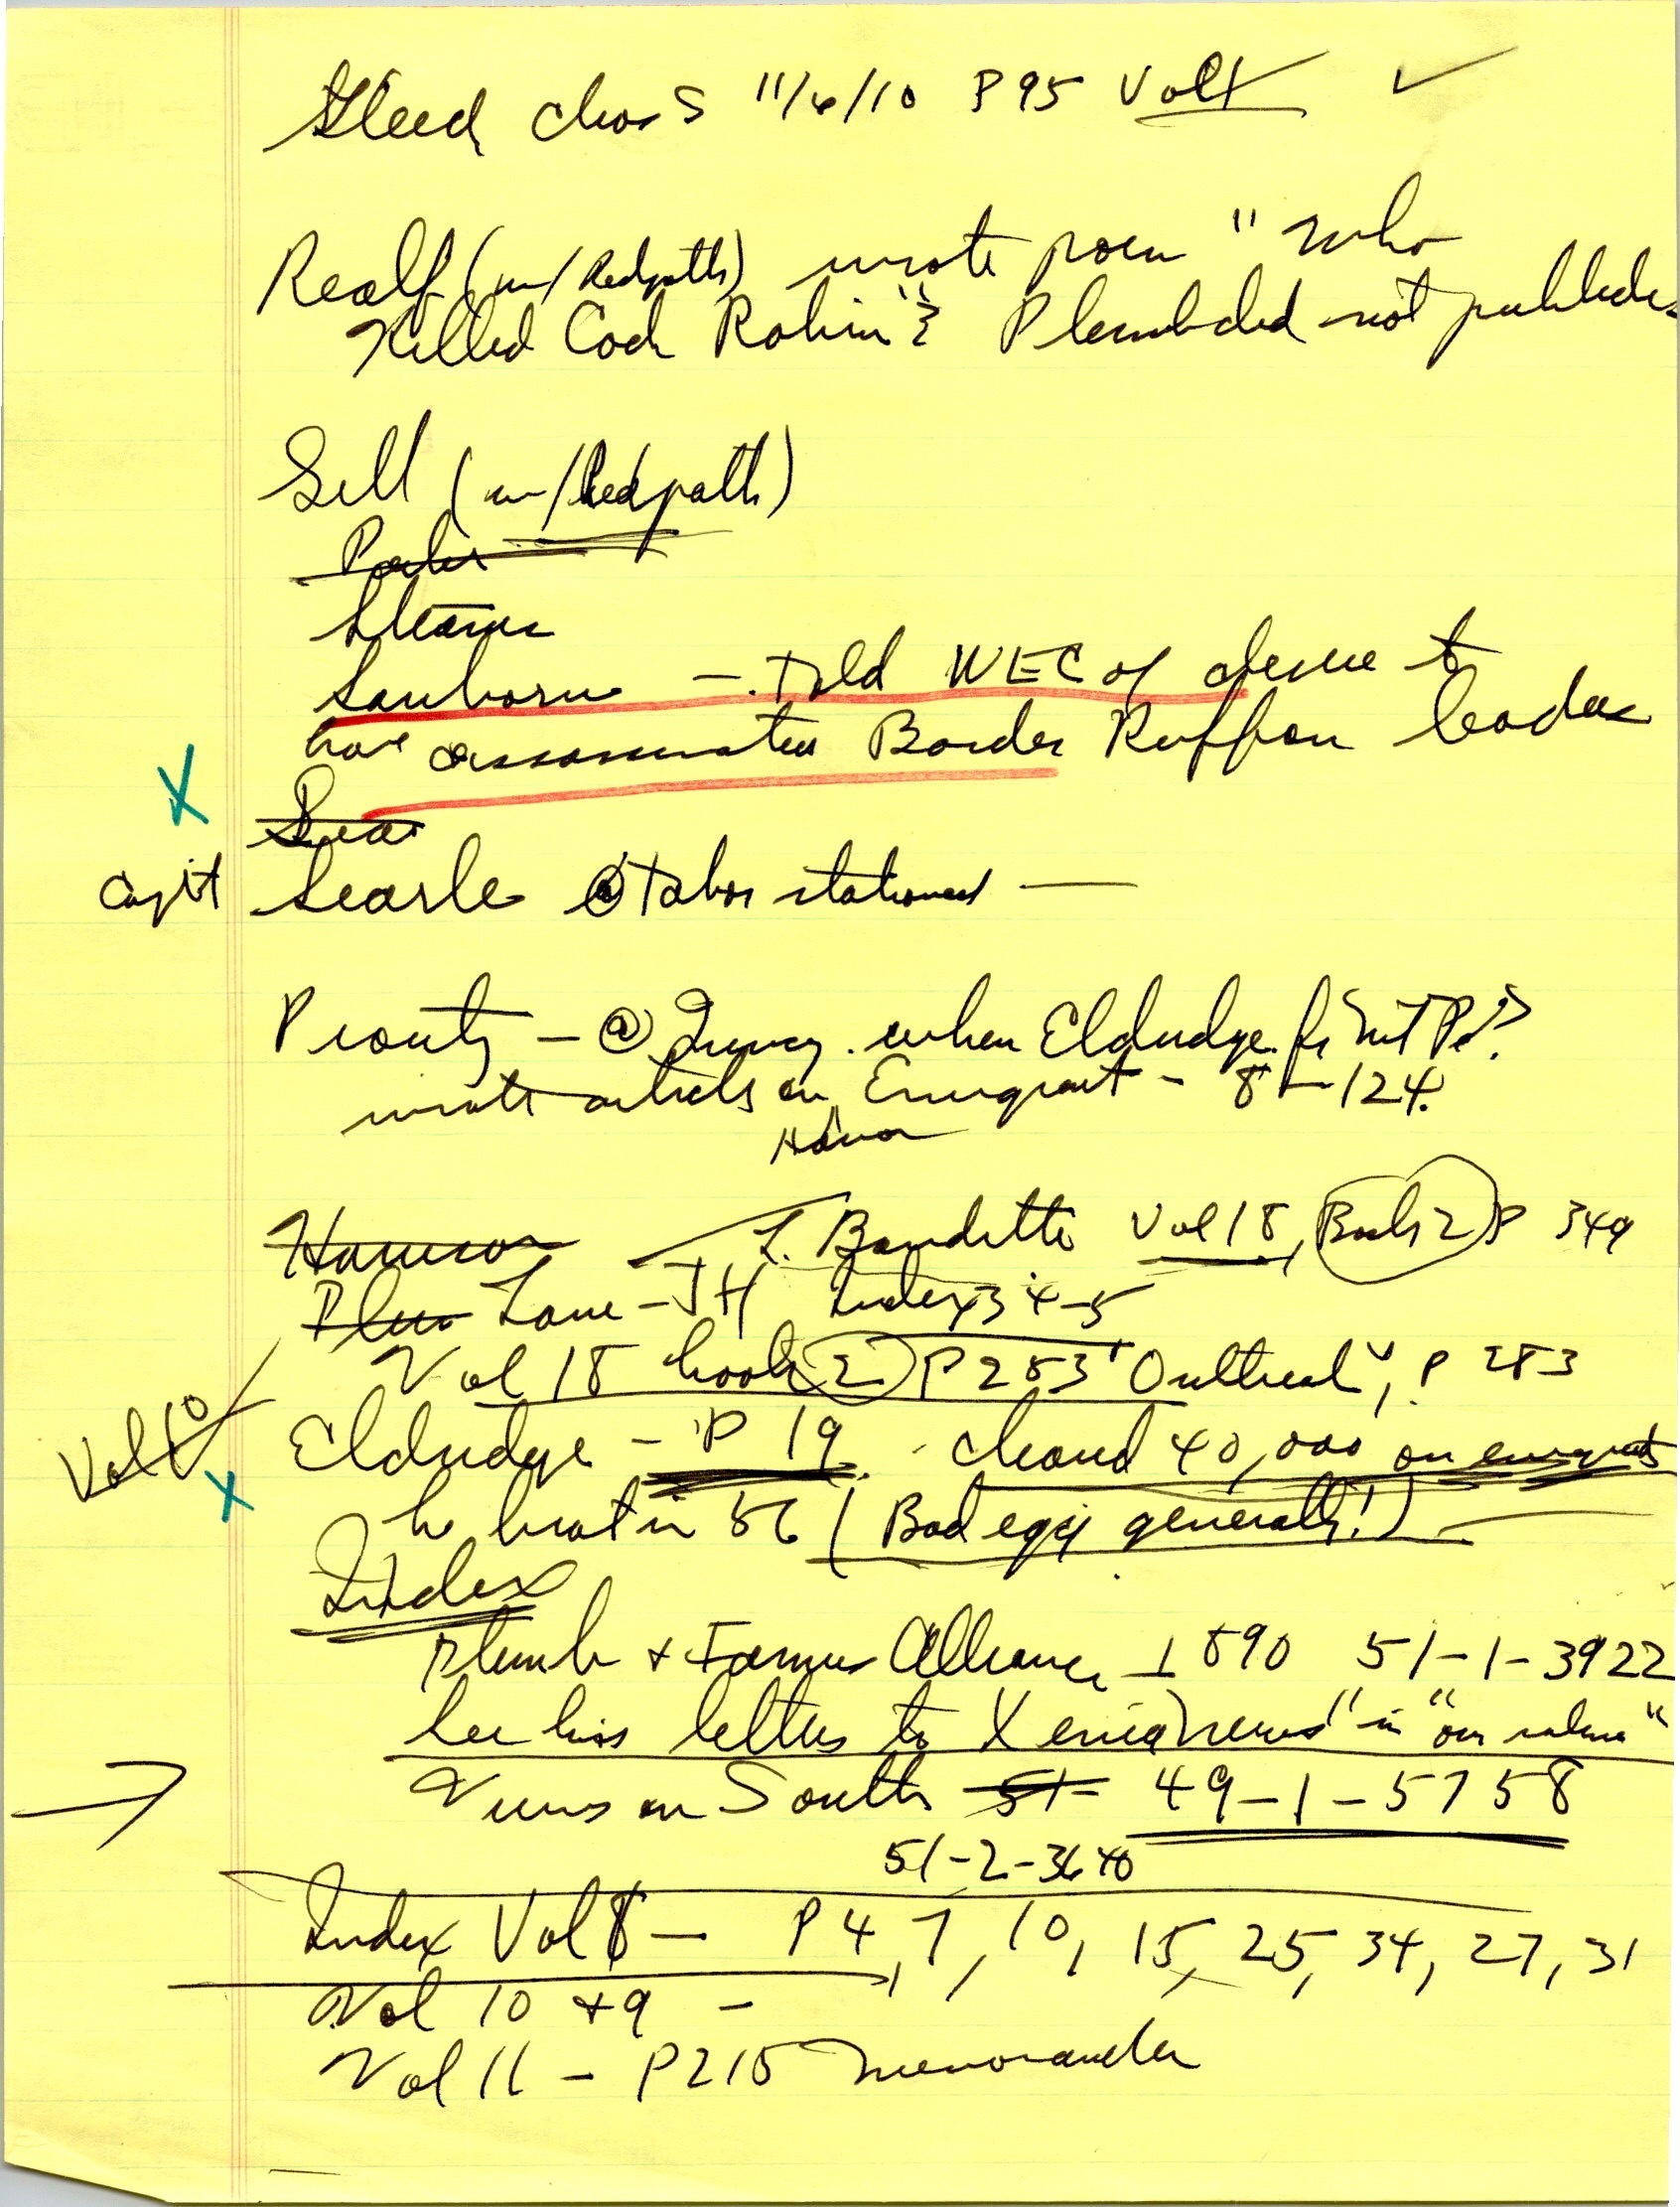 Steed Chas S 11/6/10 P 95 Vol X ✓
Realf (w/ Redpath) wrote poem "Who
Killed Cock Robin"? Plumb did not publish
Sell (w/ Redpath)
Stearns
Sanborn — told WEC of desire to
have assassinated Border Ruffian leaders
X
Capt Searle @ Tabor stationed —
Prouty — @ Quincy when Eldridge fr Mt Pl?
wrote articles on Emigrant — 8 — 124.
L. Banditti Vol 18, Book 2 P 349
Lane — JH Index 34-5
Vol 18 book 2 P 283 "Outlined", P 283
Vol 10 X Eldridge — P 19. cleaned 40,000 on emigrants
he brot in 56 (Bad egg generally!) —
Index
Plumb + Farmers Alliance 1890 51-1-3922
See his letters to Xenia News" in "
→ Views on South 51- 49-1-5758
51-2-3640
Index Vol 8 — P 4, 7, 10, 15, 25, 34, 27, 31
Vol 10 + 9 —
Vol 11 — P 215 memoranda